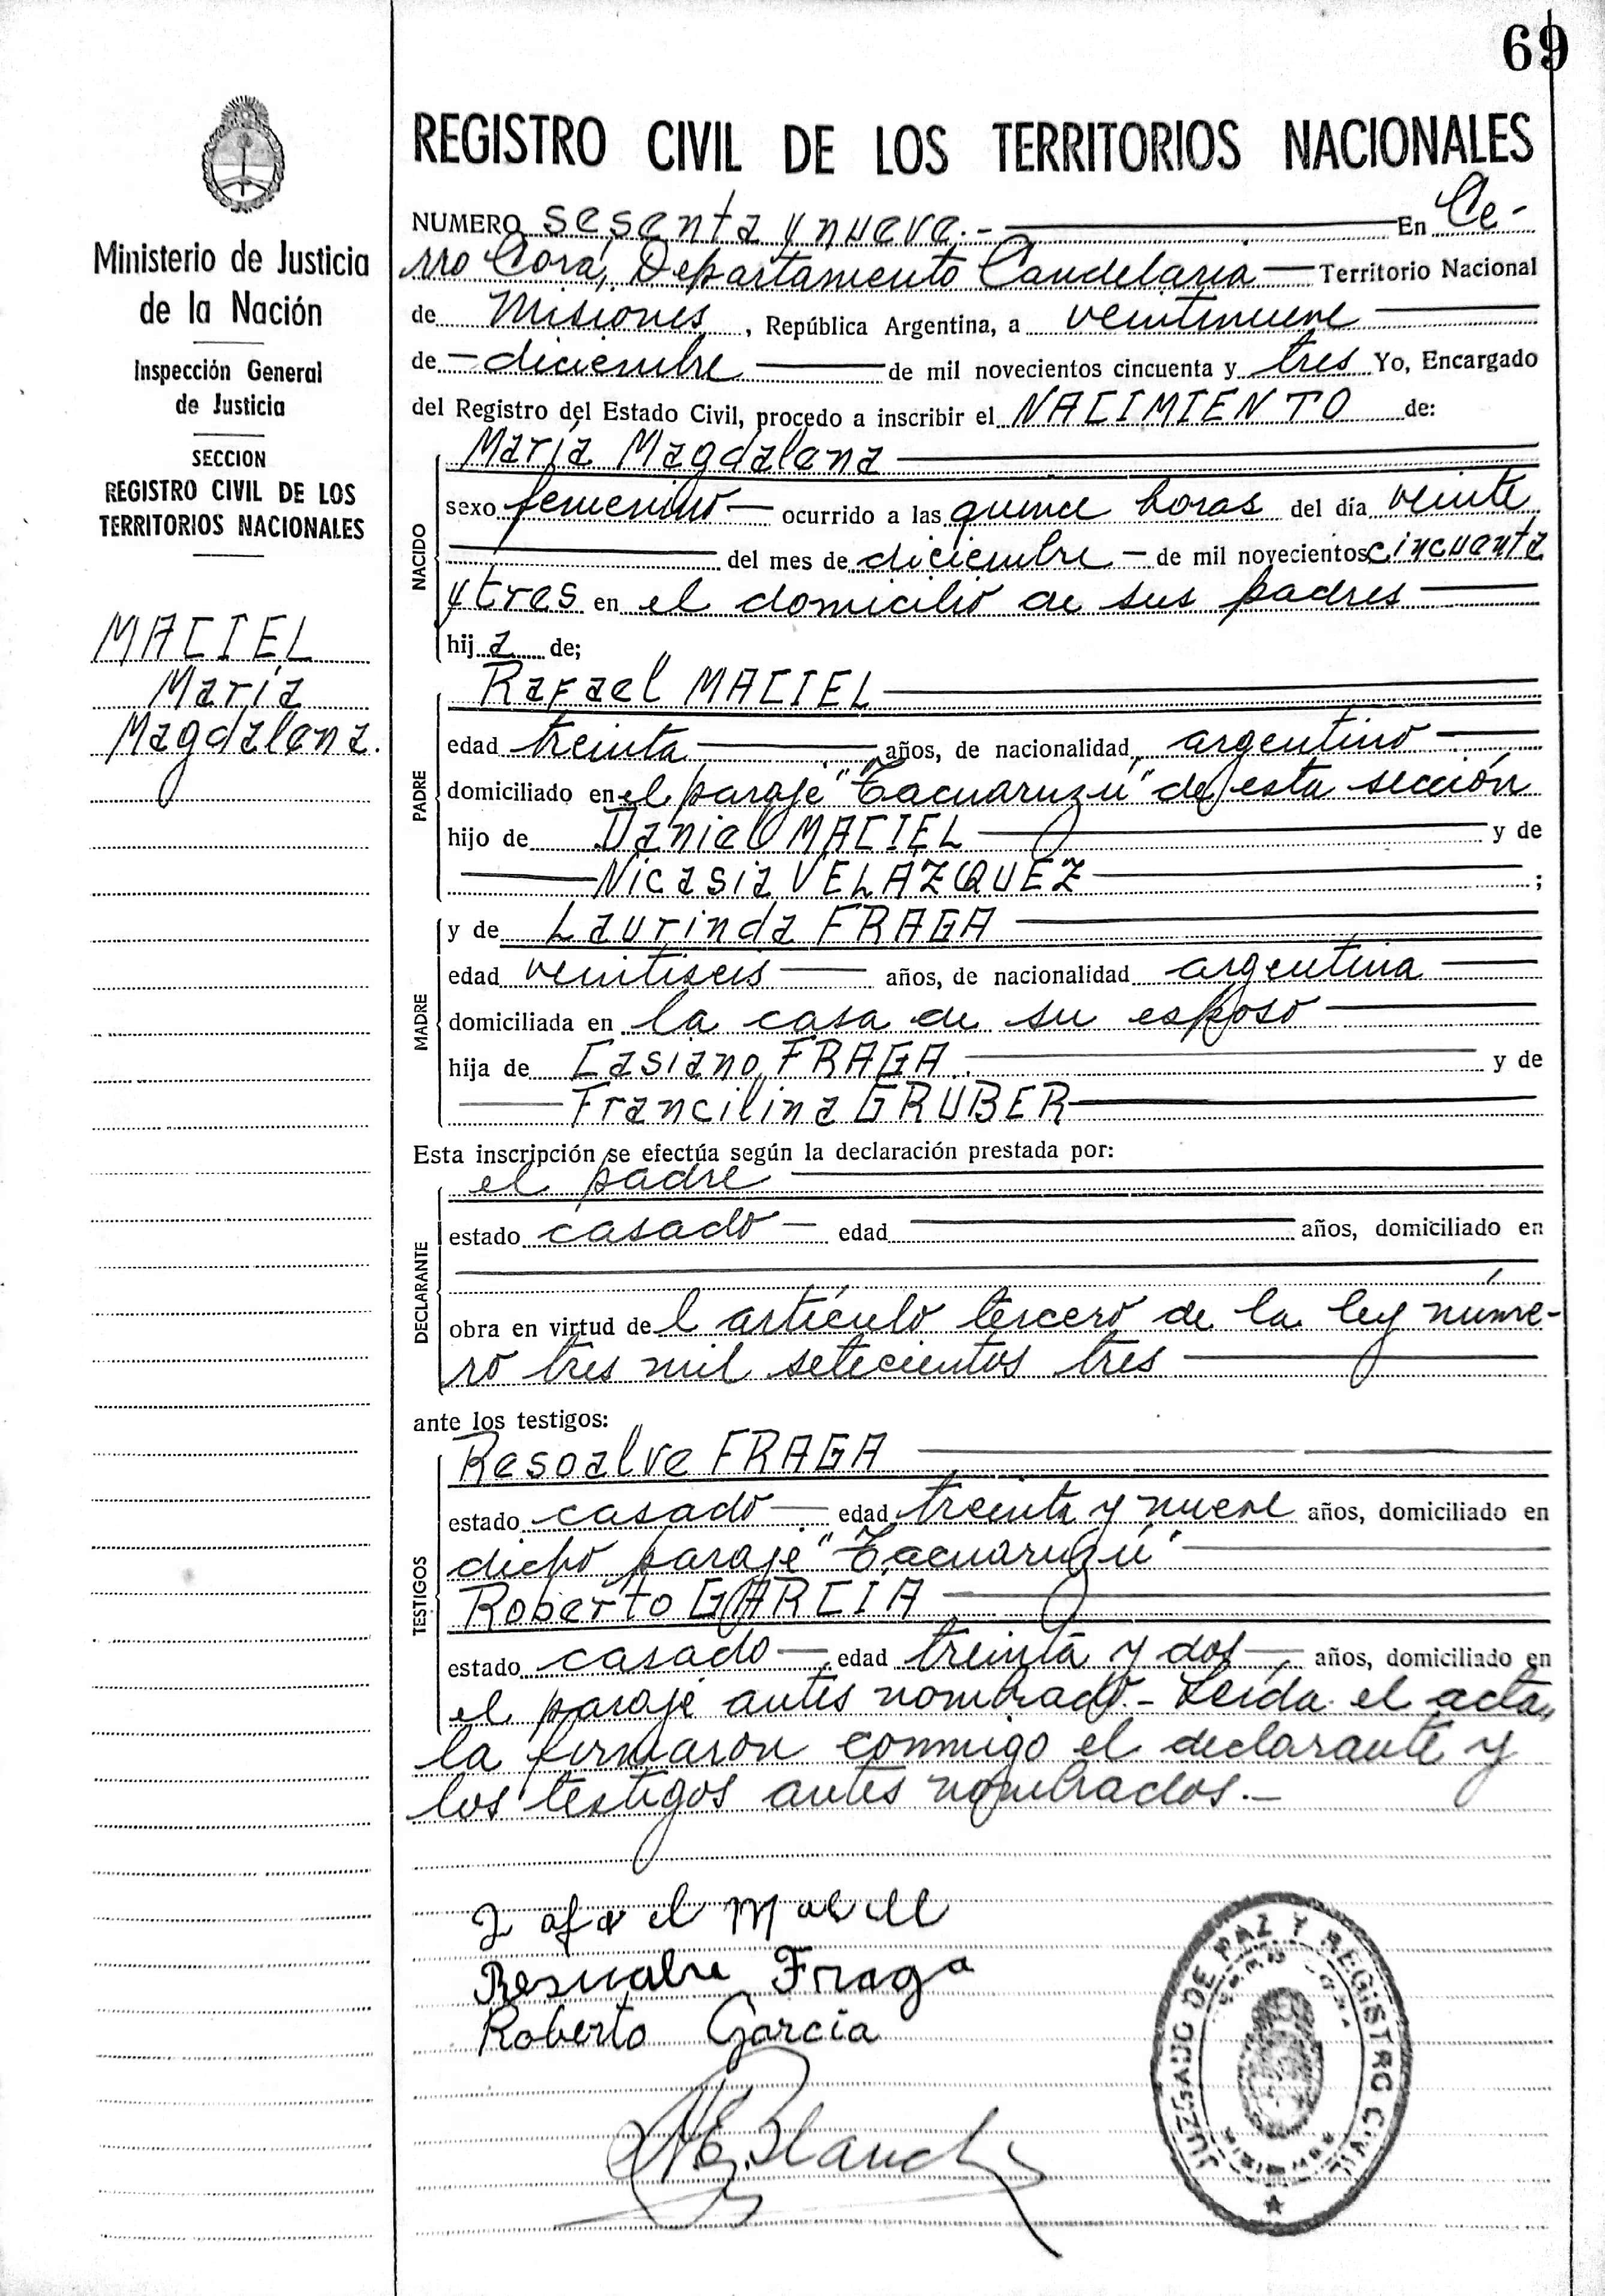 69
REGISTRO CIVIL DE LOS TERRITORIOS NACIONALES
Ministerio de Justicia
de la Nación
Inspección General
de Justicia
SECCION
REGISTRO CIVIL DE LOS
TERRITORIOS NACIONALES
MACIEL
María
Magdalena.
NUMERO sesenta y nueve.- En Ce-
rro Corá, Departamento Candelaria Territorio Nacional
de Misiones, República Argentina, a veintinueve
de diciembre de mil novecientos cincuenta y tres Yo, Encargado
del Registro del Estado Civil, procedo a inscribir el NACIMIENTO de:
NACIDO
María Magdalena
sexo femenino ocurrido a las quince horas del día veinte
del mes de diciembre de mil novecientos cincuenta
y tres en el domicilio de sus padres
hija de;
PADRE
Rafael MACIEL
edad treinta años, de nacionalidad argentino
domiciliado en el paraje "Tacuaruzú" de esta sección
hijo de Daniel MACIEL y de
Nicasia VELÁZQUEZ ;
MADRE
y de Laurinda FRAGA
edad veintiseis años, de nacionalidad argentina
domiciliada en la casa de su esposo
hija de Casiano FRAGA y de
Francilina GRUBER
Esta inscripción se efectúa según la declaración prestada por:
DECLARANTE
el padre
estado casado edad años, domiciliado en
obra en virtud del artículo tercero de la ley núme-
ro tres mil setecientos tres
ante los testigos:
TESTIGOS
Resoalve FRAGA
estado casado edad treinta y nueve años, domiciliado en
dicho paraje "Tacuaruzú"
Roberto GARCÍA
estado casado edad treinta y dos años, domiciliado en
el paraje antes nombrado.- Leída el acta,
la firmaron conmigo el declarante y
los testigos antes nombrados.-
Resualve Fraga
Roberto Garcia
JUZGADO DE PAZ Y REGISTRO CIVIL